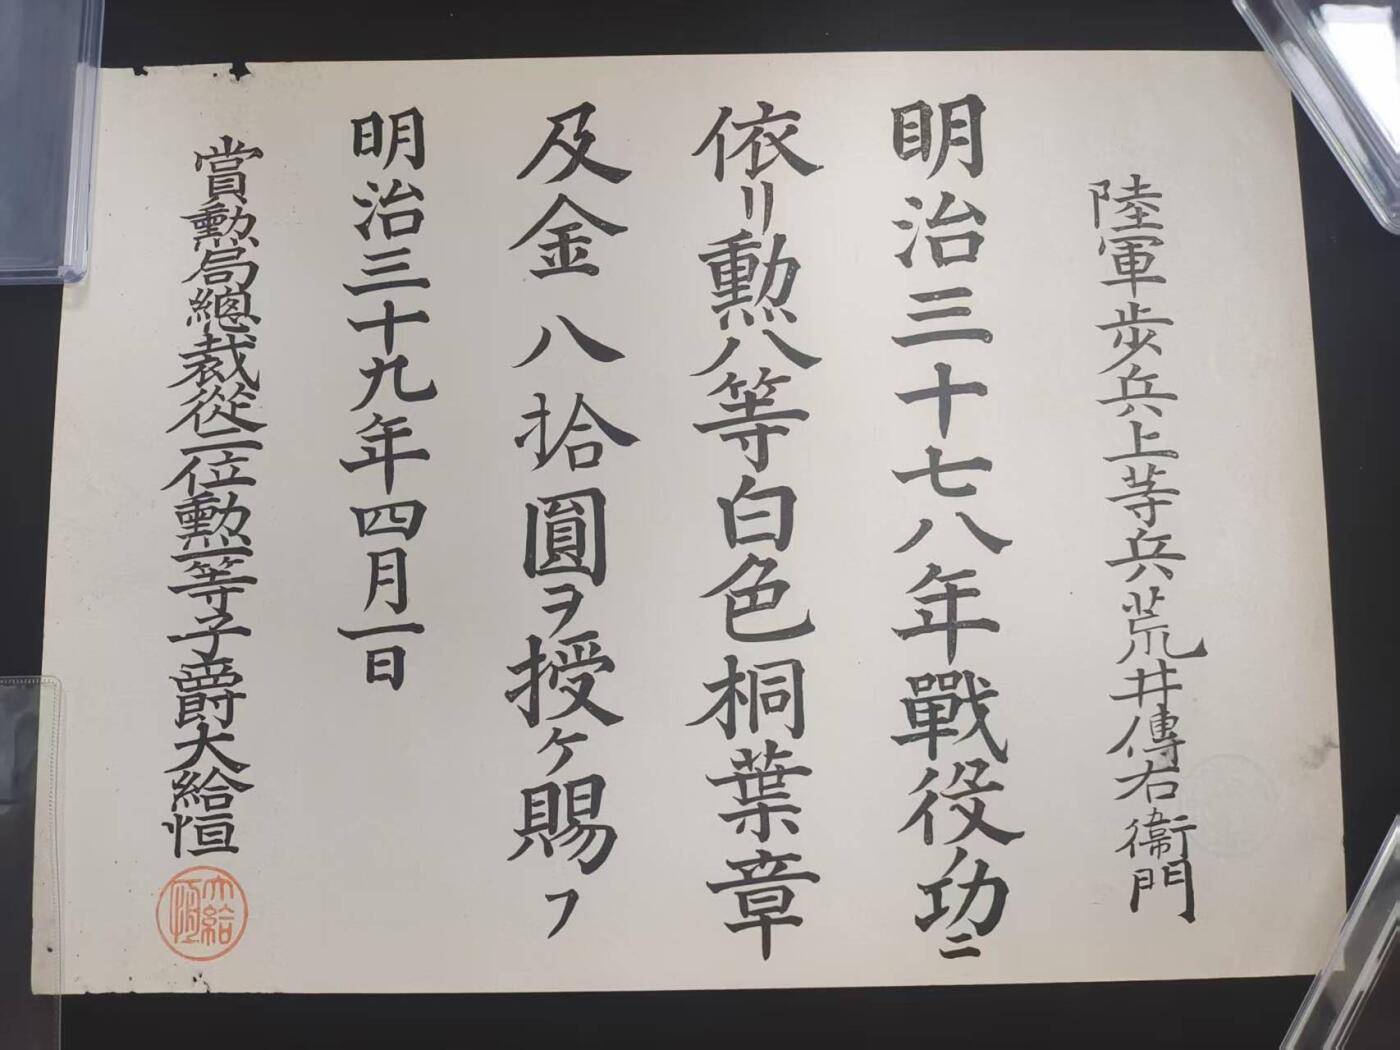 陸軍歩兵上等兵荒井傳右衞門
明治三十七八年戰役ノ功ニ
依リ勲八等白色桐葉章
及金八拾圓ヲ授ケ賜フ
明治三十九年四月一日
賞勲局總裁從二位勲一等子爵大給恒
大給恒